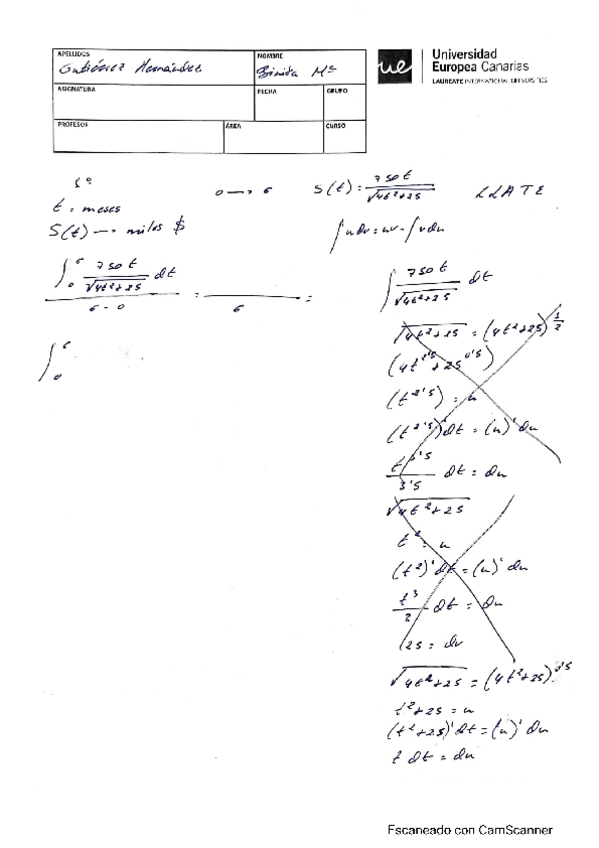 APELLIDOS
Gutiérrez Hernández
NOMBRE
Mª
ASIGNATURA
FECHA
GRUPO
PROFESOR
ÁREA
CURSO
ue
Universidad
Europea Canarias
LAUREATE INTERNATIONAL UNIVERSITIES
1º
t = meses
S(t) → miles $
0 → 6
S(t) = 750t/√4t²+25
∫udv = uv - ∫vdu
∫₀⁶ 750t/√4t²+25 dt / 6-0 = / 6 =
∫₀⁶
∫ 750t/√4t²+25 dt
√4t²+25 = (4t²+25)^1/2
(4t^2'5 + 25^0'5)
(t^2'5) = u
(t^2'5)' dt = (u)' du
t^3'5/3'5 dt = du
√4t²+25
t² = u
(t²)' dt = (u)' du
t³/2 dt = du
25 = dv
√4t²+25 = (4t²+25)^0'5
t²+25 = u
(t²+25)' dt = (u)' du
t dt = du
Escaneado con CamScanner